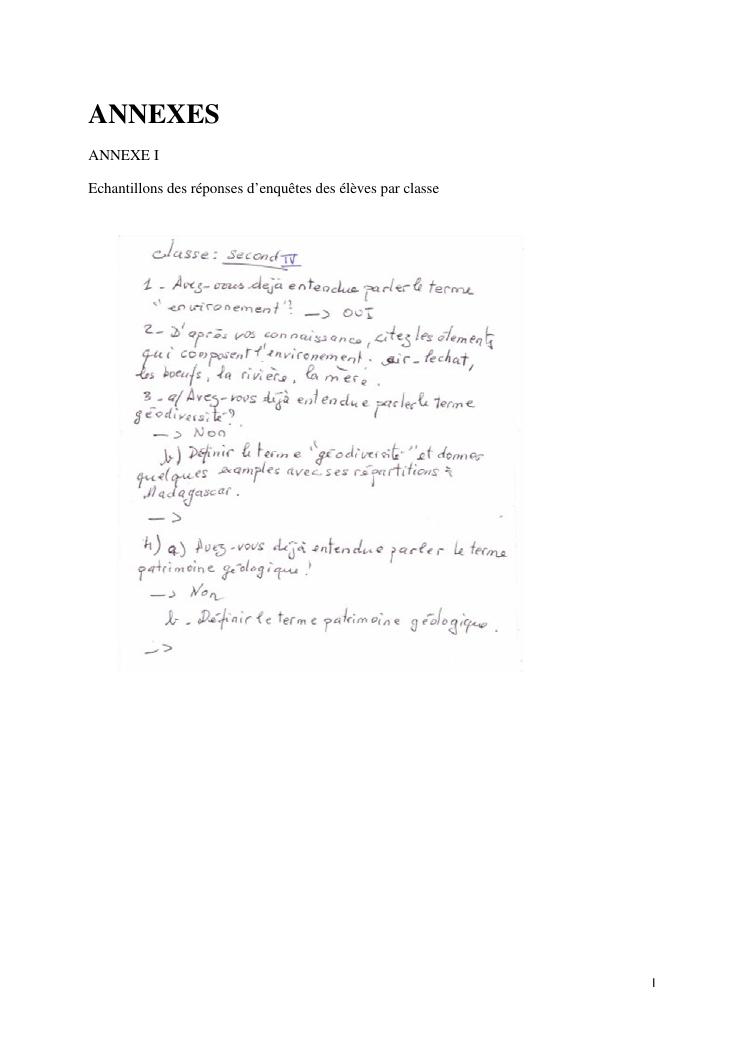 ANNEXES
ANNEXE I
Echantillons des réponses d'enquêtes des élèves par classe
classe : second IV
1 - Avez-vous dejà entendue parler le terme
"environement"? -> OUI
2- D'après vos connaissance, citez les élements
qui composent l'environement. air - le chat,
les boeufs, la rivière, la mère.
3 - a/ Avez-vous déjà entendue parler le terme
géodiversité?
-> Non
b) Définir le terme "géodiversité" et donner
quelques examples avec ses répartitions à
Madagascar.
->
4) a) Avez-vous déjà entendue parler le terme
patrimoine géologique!
-> Non
b - Définir le terme patrimoine géologique.
->
I